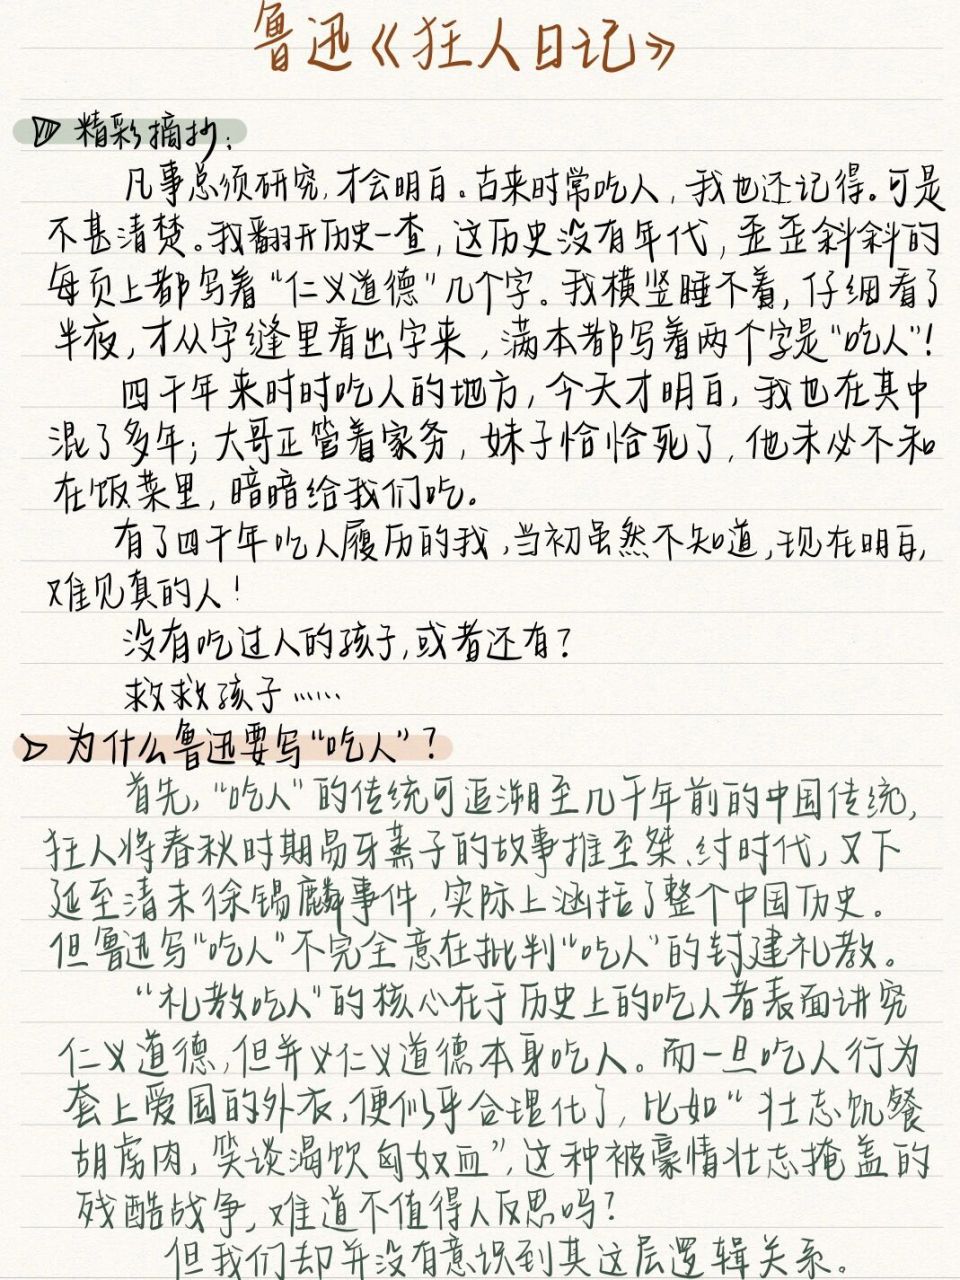 鲁迅《狂人日记》
精彩摘抄：
凡事总须研究，才会明白。古来时常吃人，我也还记得。可是
不甚清楚。我翻开历史一查，这历史没有年代，歪歪斜斜的
每页上都写着“仁义道德”几个字。我横竖睡不着，仔细看了
半夜，才从字缝里看出字来，满本都写着两个字是“吃人”！
四千年来时时吃人的地方，今天才明白，我也在其中
混了多年；大哥正管着家务，妹子恰恰死了，他未必不和
在饭菜里，暗暗给我们吃。
有了四千年吃人履历的我，当初虽然不知道，现在明白，
难见真的人！
没有吃过人的孩子，或者还有？
救救孩子……
为什么鲁迅要写“吃人”？
首先，“吃人”的传统可追溯至几千年前的中国传统，
狂人将春秋时期易牙蒸子的故事推至桀、纣时代，又下
延至清末徐锡麟事件，实际上涵括了整个中国历史。
但鲁迅写“吃人”不完全意在批判“吃人”的封建礼教。
“礼教吃人”的核心在于历史上的吃人者表面讲究
仁义道德，但并义仁义道德本身吃人。而一旦吃人行为
套上爱国的外衣，便似乎合理化了，比如“壮志饥餐
胡虏肉，笑谈渴饮匈奴血”，这种被豪情壮志掩盖的
残酷战争，难道不值得人反思吗？
但我们却并没有意识到其这层逻辑关系。